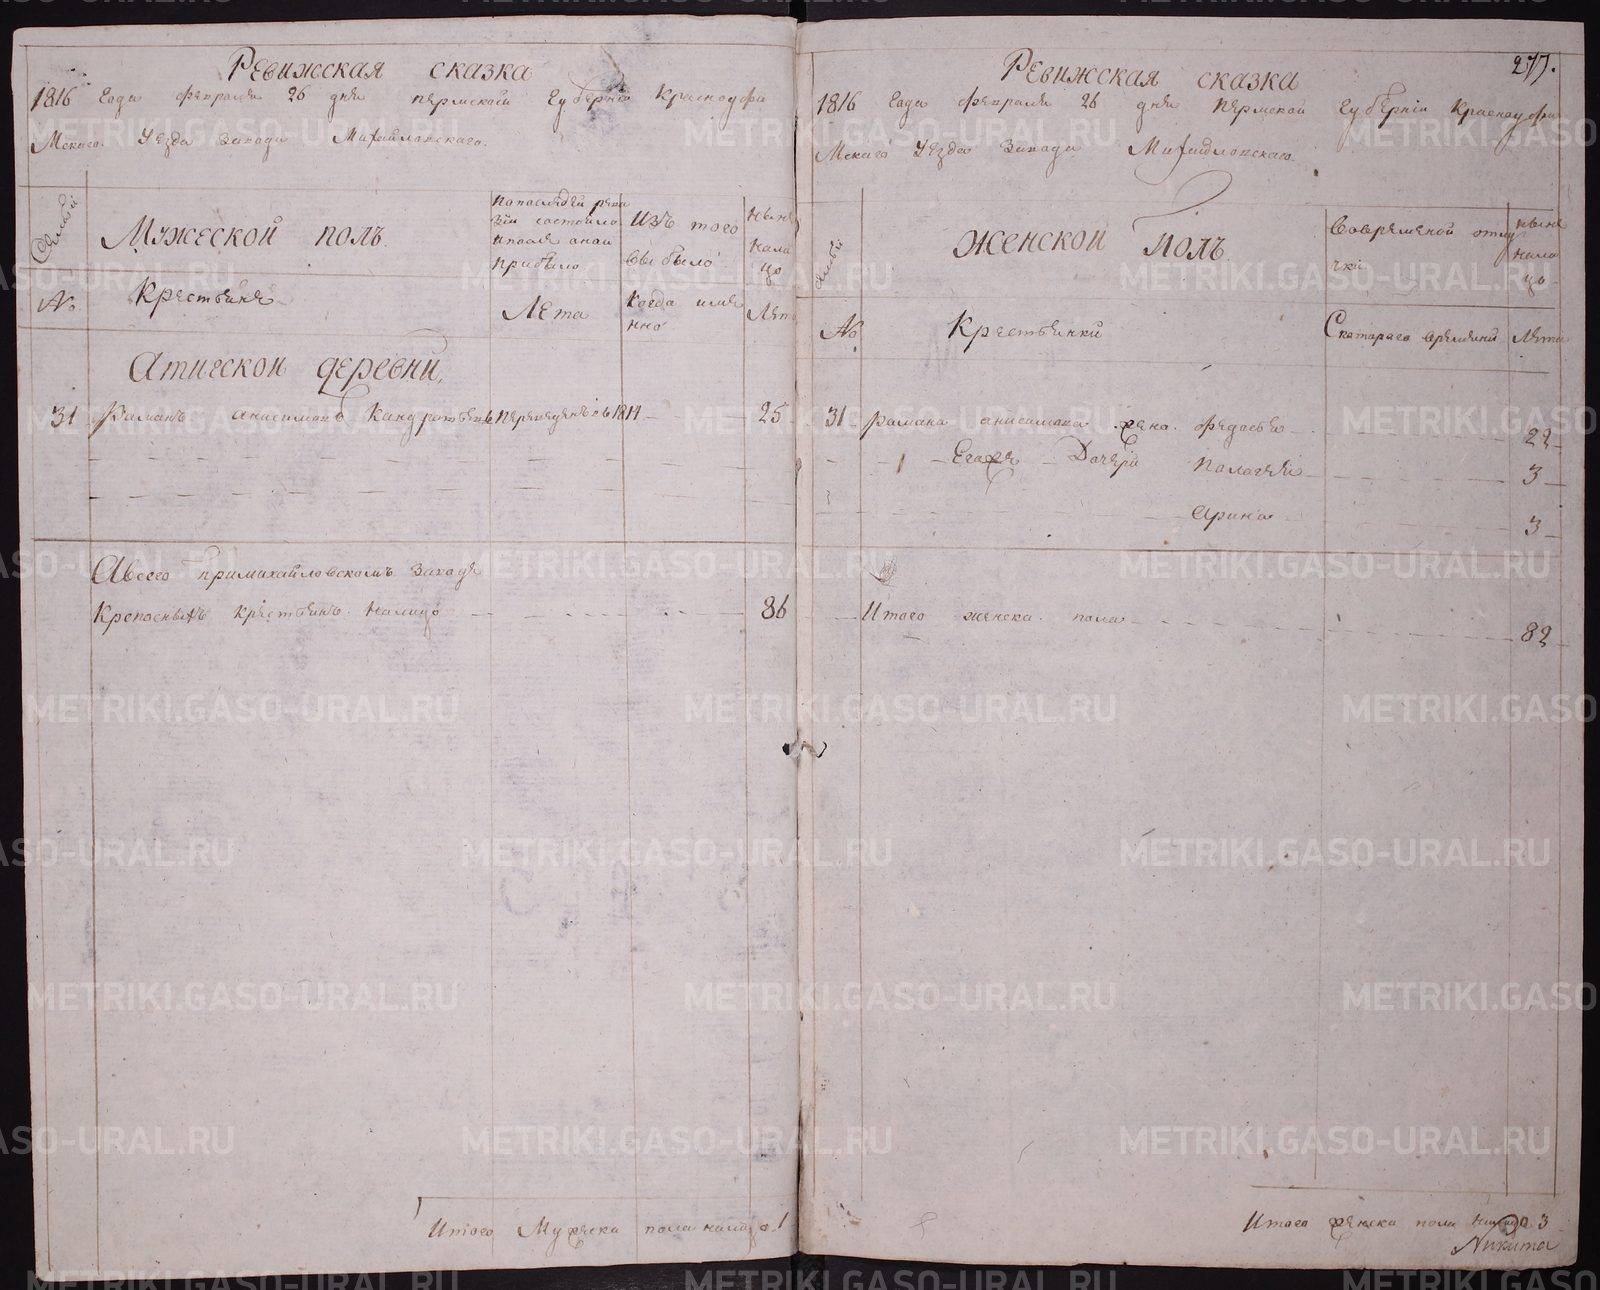 Ревижская сказка
1816 Года Февраля 26 дня пермской Губернiи Красноуфи
мскаго Уезда Завода Михайловскаго.
Семьи
Мужеской полъ.
Попоследней реви
зiи состояло
ипосле оной
прибыло
Изъ того
выбыло
ныне
нали
цо
№
Крестьяне
Лета
Когда имя
нно
Лета
Атигской деревни.
31 Раманъ анисимовъ Кандратьевъ переведенъ въ 1814 25
Авсего примихайловскомъ Заводе
Крепосныхъ крестьянъ налицо 86
Итого Мужеска пола налицо 1
277.
Ревижская сказка
1816 Года Февраля 26 дня пермской Губернiи Красноуфи
мскаго Уезда Завода Михайловскаго.
семьи
женской полъ
Вовременной отлу
чки
ныне
нали
цо
№
Крестьянки
Скотораго времяни
Лета
31 Рамана анисимова жена Федосья 22
Егоже Дочери Палагея 3
Арина 3
Итого женска пола 82
Итого женска пола налицо 3
Никита
METRIKI.GASO-URAL.RU